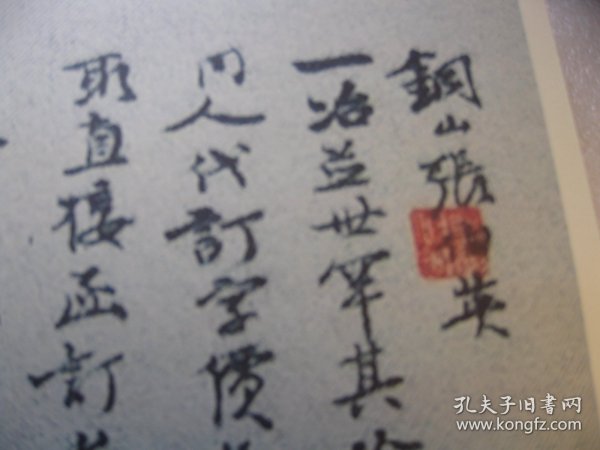 銅山張伯英
一冶並世罕其
同人代訂字價
取直接函訂
孔夫子旧书网
www.kongfz.com